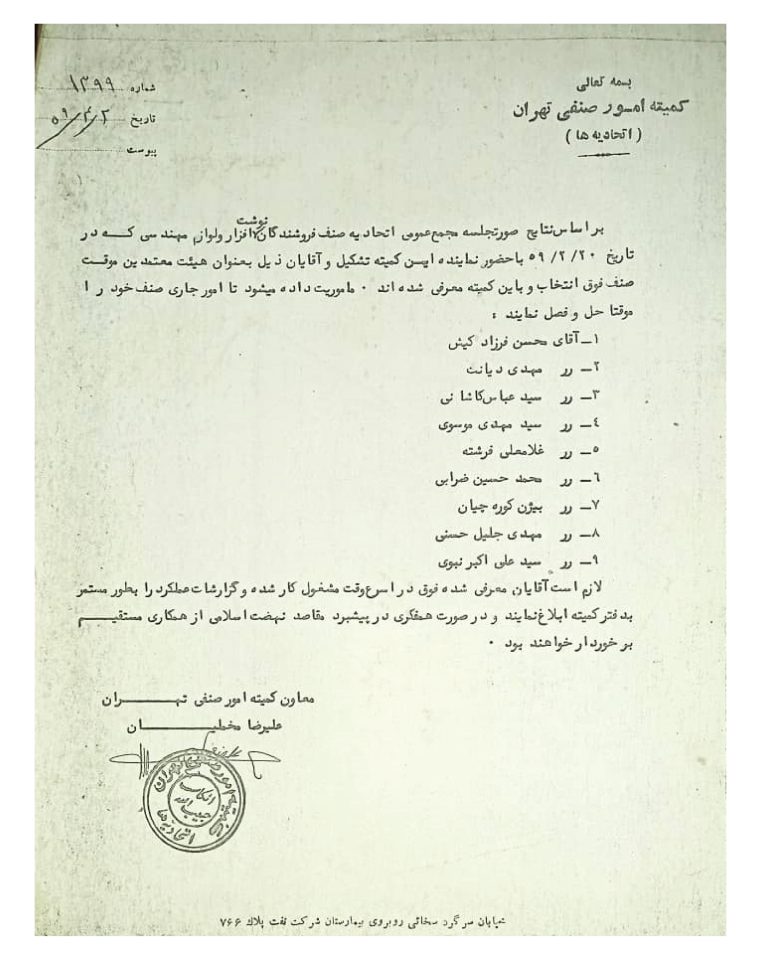 بسمه تعالی
کمیته امور صنفی تهران
( اتحادیه ها )
شماره ۱۳۹۹
تاریخ ۵۹/۴/۲
پیوست
نوشت
بر اساس نتایج صورتجلسه مجمع عمومی اتحادیه صنف فروشندگان افزار ولوازم مهندسی که در
تاریخ ۵۹/۲/۲۰ باحضور نماینده این کمیته تشکیل و آقایان ذیل بعنوان هیئت معتمدین موقت
صنف فوق انتخاب و باین کمیته معرفی شده اند ۰ ماموریت داده میشود تا امور جاری صنف خود را
موقتا حل و فصل نمایند :
۱ــ آقای محسن فرزاد کیش
۲ــ رر مهدی دیانت
۳ــ رر سید عباس کاشانی
٤ــ رر سید مهدی موسوی
۵ــ رر غلامعلی فرشته
٦ــ رر محمد حسین ضرابی
۷ــ رر بیژن کوره چیان
۸ــ رر مهدی جلیل حسنی
۹ــ رر سید علی اکبر نبوی
لازم است آقایان معرفی شده فوق در اسرع وقت مشغول کار شده و گزارشات عملکرد را بطور مستمر
بدفتر کمیته ابلاغ نمایند و در صورت همفکری در پیشبرد مقاصد نهضت اسلامی از همکاری مستقیم
برخوردار خواهند بود ۰
معاون کمیته امور صنفی تهـــران
علیرضا مخطیـــان
کمیته امور صنفی تهران
الکاسب حبیب الله
اتحادیه ها
خیابان سرگرد سخائی روبروی بیمارستان شرکت نفت پلاك ۷۶۶